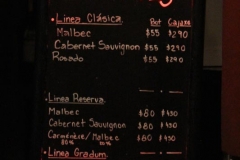 • Linea Clásica. Bot Caja x6
Malbec $55 $290
Cabernet Sauvignon $55 $290
Rosado $55 $290
• Linea Reserva.
Malbec $80 $430
Cabernet Sauvignon $80 $430
Carménère/Malbec $80 $430
• Linea Gradum.